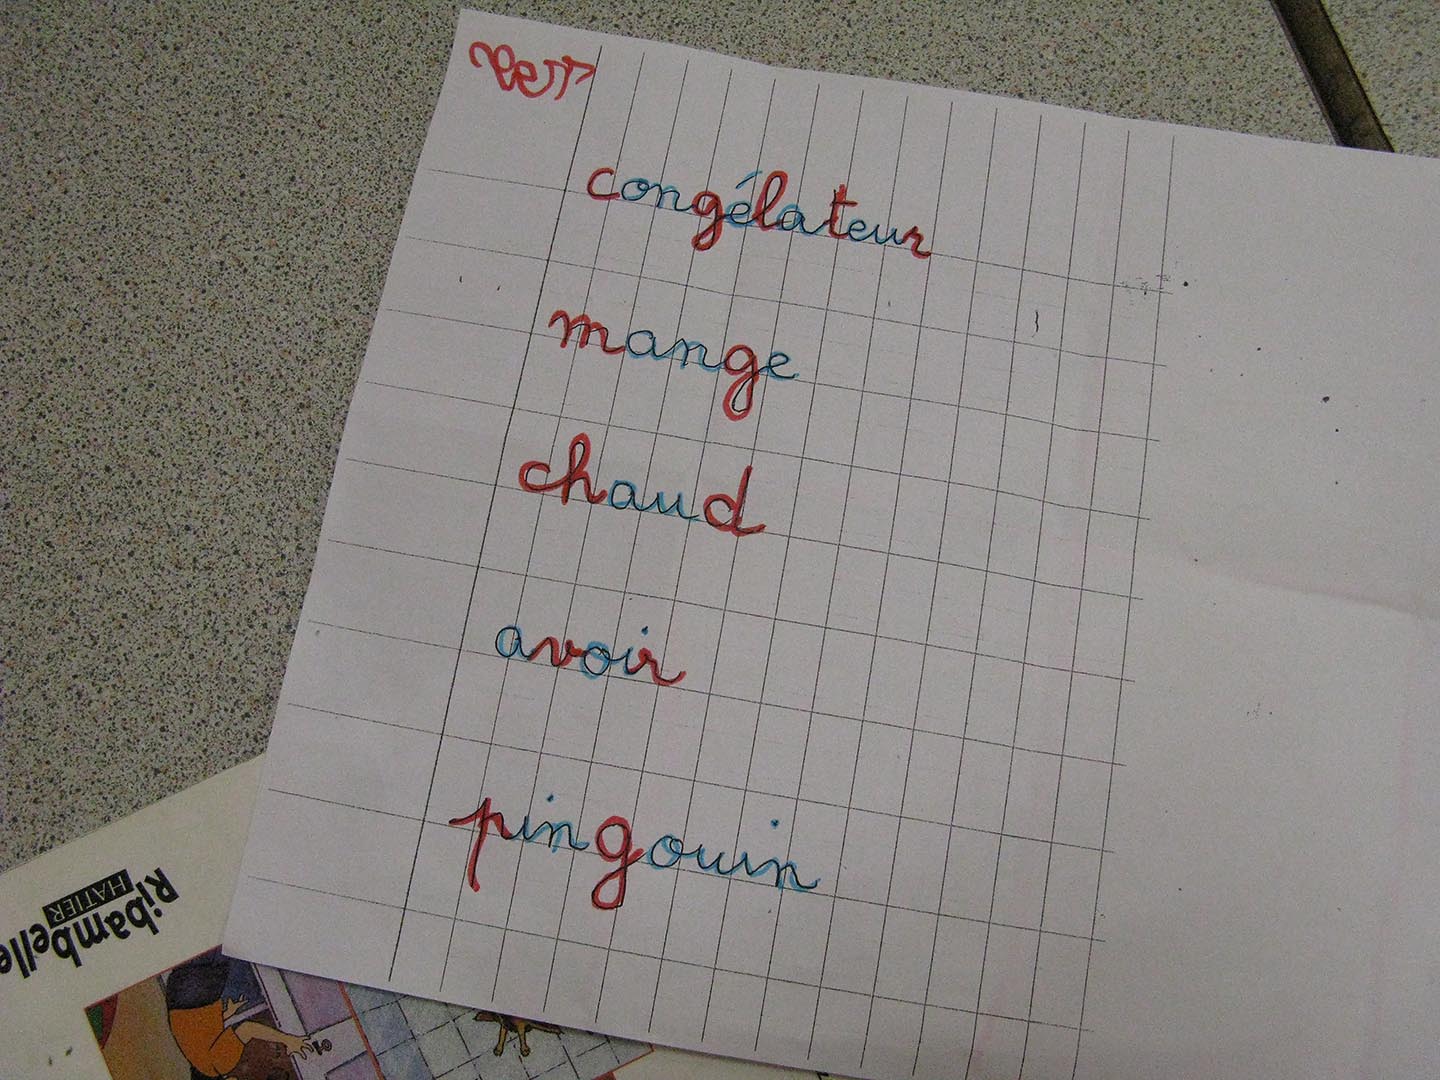 congélateur
mange
chaud
avoir
pingouin
Ribambelle
HATIER